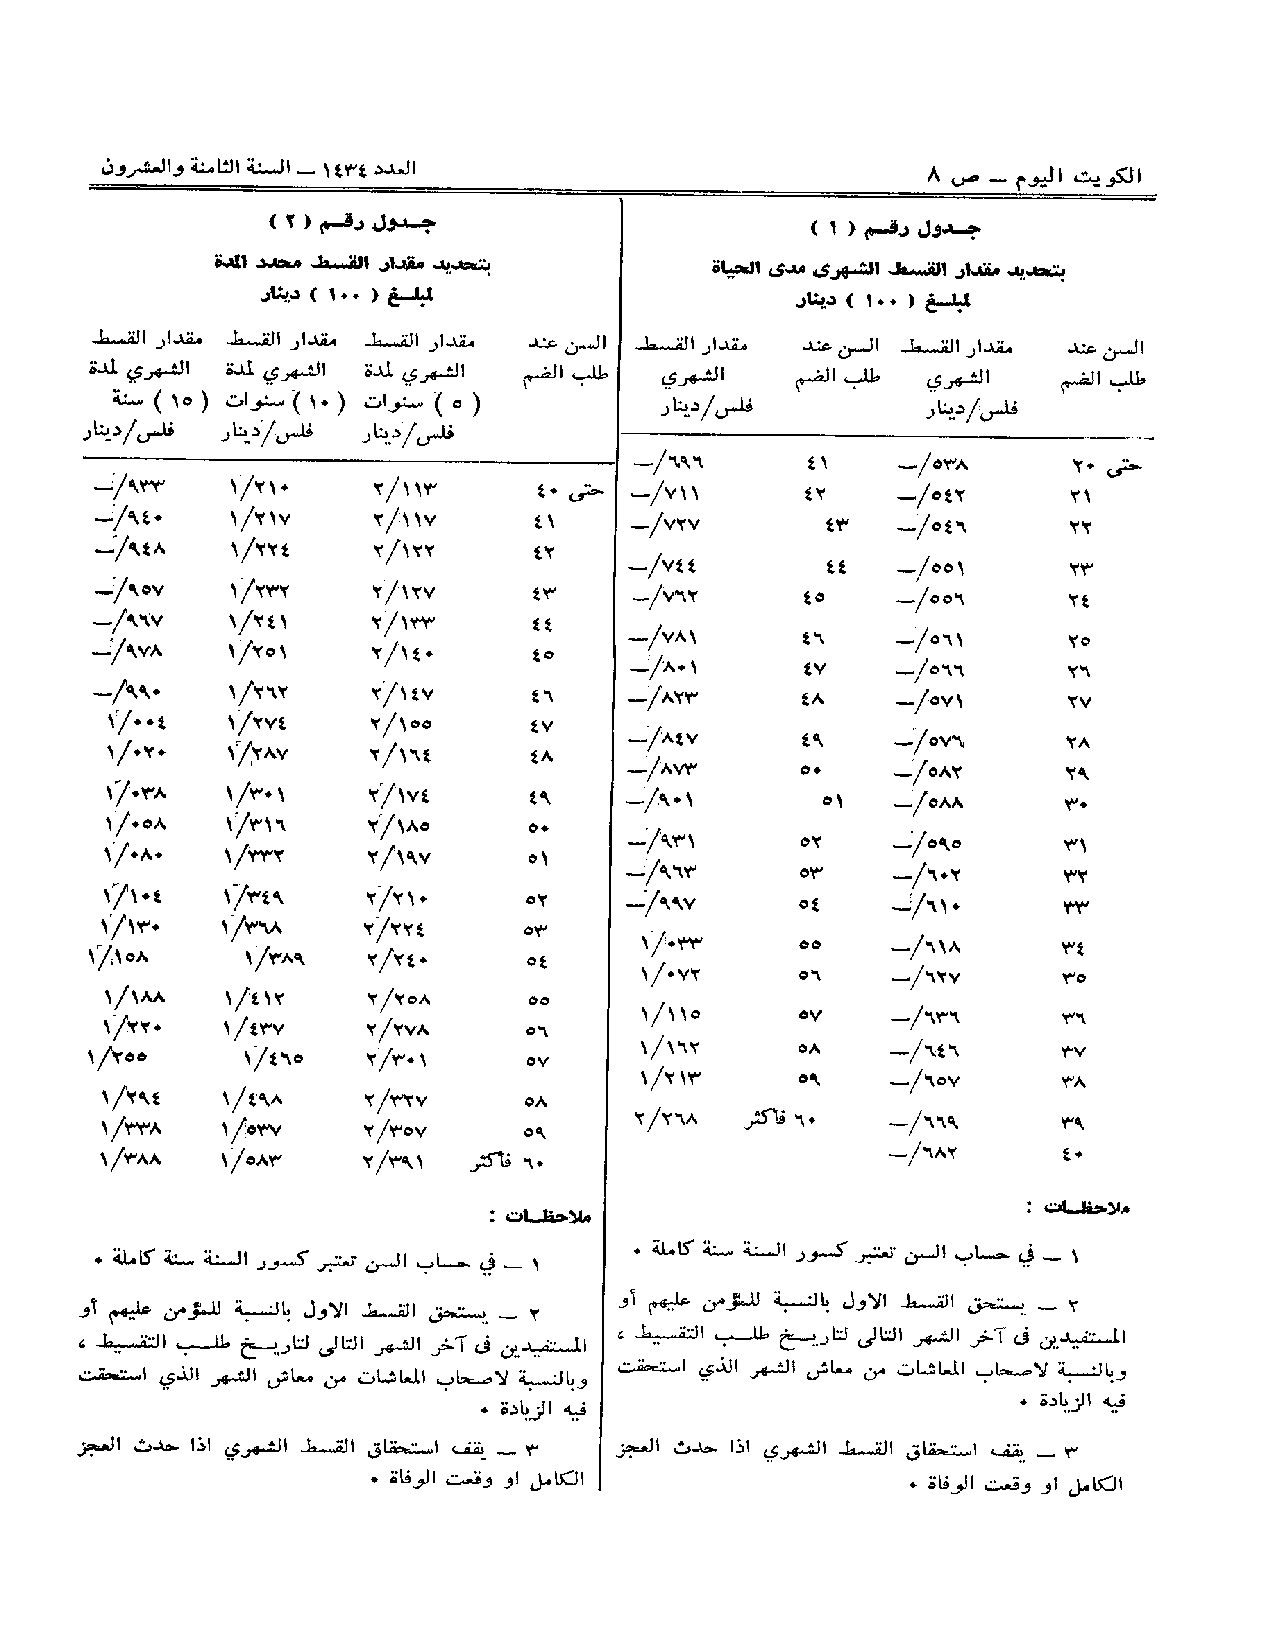 الكويت اليوم — ص ٨
العدد ١٤٣٤ — السنة الثامنة والعشرون
جدول رقم ( ١ )
بتحديد مقدار القسط الشهرى مدى الحياة
لمبلغ ( ١٠٠ ) دينار
السن عند مقدار القسط السن عند مقدار القسط
طلب الضم الشهري طلب الضم الشهري
فلس/دينار فلس/دينار
حتى ٢٠ ٥٣٨/— ٤١ ٦٩٦/—
٢١ ٥٤٢/— ٤٢ ٧١١/—
٢٢ ٥٤٦/— ٤٣ ٧٢٧/—
٢٣ ٥٥١/— ٤٤ ٧٤٤/—
٢٤ ٥٥٦/— ٤٥ ٧٦٢/—
٢٥ ٥٦١/— ٤٦ ٧٨١/—
٢٦ ٥٦٦/— ٤٧ ٨٠١/—
٢٧ ٥٧١/— ٤٨ ٨٢٣/—
٢٨ ٥٧٦/— ٤٩ ٨٤٧/—
٢٩ ٥٨٢/— ٥٠ ٨٧٣/—
٣٠ ٥٨٨/— ٥١ ٩٠١/—
٣١ ٥٩٥/— ٥٢ ٩٣١/—
٣٢ ٦٠٢/— ٥٣ ٩٦٣/—
٣٣ ٦١٠/— ٥٤ ٩٩٧/—
٣٤ ٦١٨/— ٥٥ ٠٣٣/١
٣٥ ٦٢٧/— ٥٦ ٠٧٢/١
٣٦ ٦٣٦/— ٥٧ ١١٥/١
٣٧ ٦٤٦/— ٥٨ ١٦٢/١
٣٨ ٦٥٧/— ٥٩ ٢١٣/١
٣٩ ٦٦٩/— ٦٠ فاكثر ٢٦٨/٢
٤٠ ٦٨٢/—
ملاحظات :
١ — في حساب السن تعتبر كسور السنة سنة كاملة ٠
٢ — يستحق القسط الاول بالنسبة للمؤمن عليهم أو
المستفيدين فى آخر الشهر التالى لتاريخ طلب التقسيط ،
وبالنسبة لاصحاب المعاشات من معاش الشهر الذي استحقت
فيه الزيادة ٠
٣ — يقف استحقاق القسط الشهري اذا حدث العجز
الكامل او وقعت الوفاة ٠
جدول رقم ( ٢ )
بتحديد مقدار القسط محدد المدة
لمبلغ ( ١٠٠ ) دينار
السن عند مقدار القسط مقدار القسط مقدار القسط
طلب الضم الشهري لمدة الشهري لمدة الشهري لمدة
( ٥ ) سنوات ( ١٠ ) سنوات ( ١٥ ) سنة
فلس/دينار فلس/دينار فلس/دينار
حتى ٤٠ ١١٣/٢ ٢١٠/١ ٩٣٣/—
٤١ ١١٧/٢ ٢١٧/١ ٩٤٠/—
٤٢ ١٢٢/٢ ٢٢٤/١ ٩٤٨/—
٤٣ ١٢٧/٢ ٢٣٢/١ ٩٥٧/—
٤٤ ١٣٣/٢ ٢٤١/١ ٩٦٧/—
٤٥ ١٤٠/٢ ٢٥١/١ ٩٧٨/—
٤٦ ١٤٧/٢ ٢٦٢/١ ٩٩٠/—
٤٧ ١٥٥/٢ ٢٧٤/١ ٠٠٤/١
٤٨ ١٦٤/٢ ٢٨٧/١ ٠٢٠/١
٤٩ ١٧٤/٢ ٣٠١/١ ٠٣٨/١
٥٠ ١٨٥/٢ ٣١٦/١ ٠٥٨/١
٥١ ١٩٧/٢ ٣٣٢/١ ٠٨٠/١
٥٢ ٢١٠/٢ ٣٤٩/١ ١٠٤/١
٥٣ ٢٢٤/٢ ٣٦٨/١ ١٣٠/١
٥٤ ٢٤٠/٢ ٣٨٩/١ ١٥٨/١
٥٥ ٢٥٨/٢ ٤١٢/١ ١٨٨/١
٥٦ ٢٧٨/٢ ٤٣٧/١ ٢٢٠/١
٥٧ ٣٠١/٢ ٤٦٥/١ ٢٥٥/١
٥٨ ٣٢٧/٢ ٤٩٨/١ ٢٩٤/١
٥٩ ٣٥٧/٢ ٥٣٧/١ ٣٣٨/١
٦٠ فاكثر ٣٩١/٢ ٥٨٣/١ ٣٨٨/١
ملاحظات :
١ — في حساب السن تعتبر كسور السنة سنة كاملة ٠
٢ — يستحق القسط الاول بالنسبة للمؤمن عليهم أو
المستفيدين فى آخر الشهر التالى لتاريخ طلب التقسيط ،
وبالنسبة لاصحاب المعاشات من معاش الشهر الذي استحقت
فيه الزيادة ٠
٣ — يقف استحقاق القسط الشهري اذا حدث العجز
الكامل او وقعت الوفاة ٠